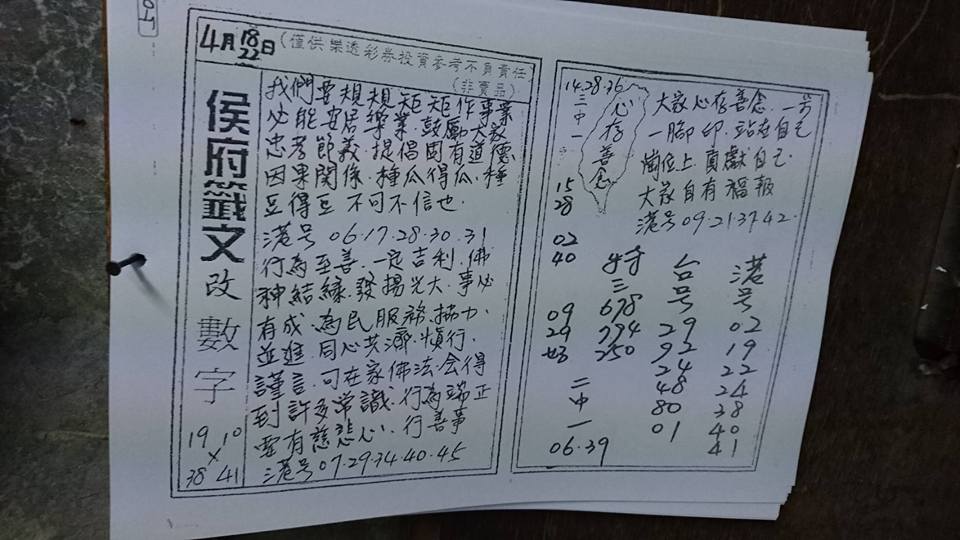 4月18日
22
(僅供樂透彩券投資參考不負責任)
(非賣品)
侯府籤文
改數字
19 10
×
38 41
我們要規規矩矩作事業
必能安居樂業.鼓勵大家
忠孝節義.提倡固有道德
因果關係.種瓜得瓜.種
豆得豆不可不信也.
港号06.17.28.30.31
行為至善.一定吉利.佛
神結緣.發揚光大.事必
有成.為民服務.協力.
並進.同心共濟.慎行.
謹言.可在家佛法.会得
到許多常識.行為端正
要有慈悲心.行善事
港号07.29.34.40.45
14.28.36
三中一
15
28
02
40
09
29
二中一
06.39
心存善念
大家心存善念.一步
一腳印.站在自己
崗位上貢獻自己.
大家自有福報
港号09.21.37.42.
特三
678
794
250
台号
29
92
24
48
80
01
港号
02
19
22
24
38
40
41